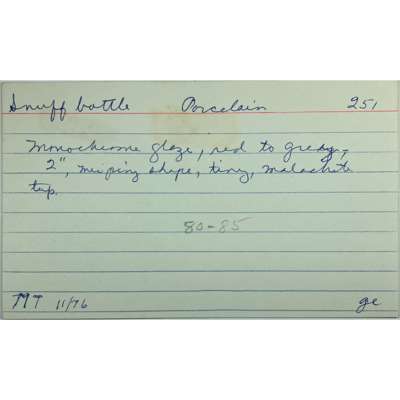 Snuff bottle Porcelain 251
Monochrome glaze, red to greay,
2", meiping shape, tiny, malachite
top.
80-85
MT 11/76 gc